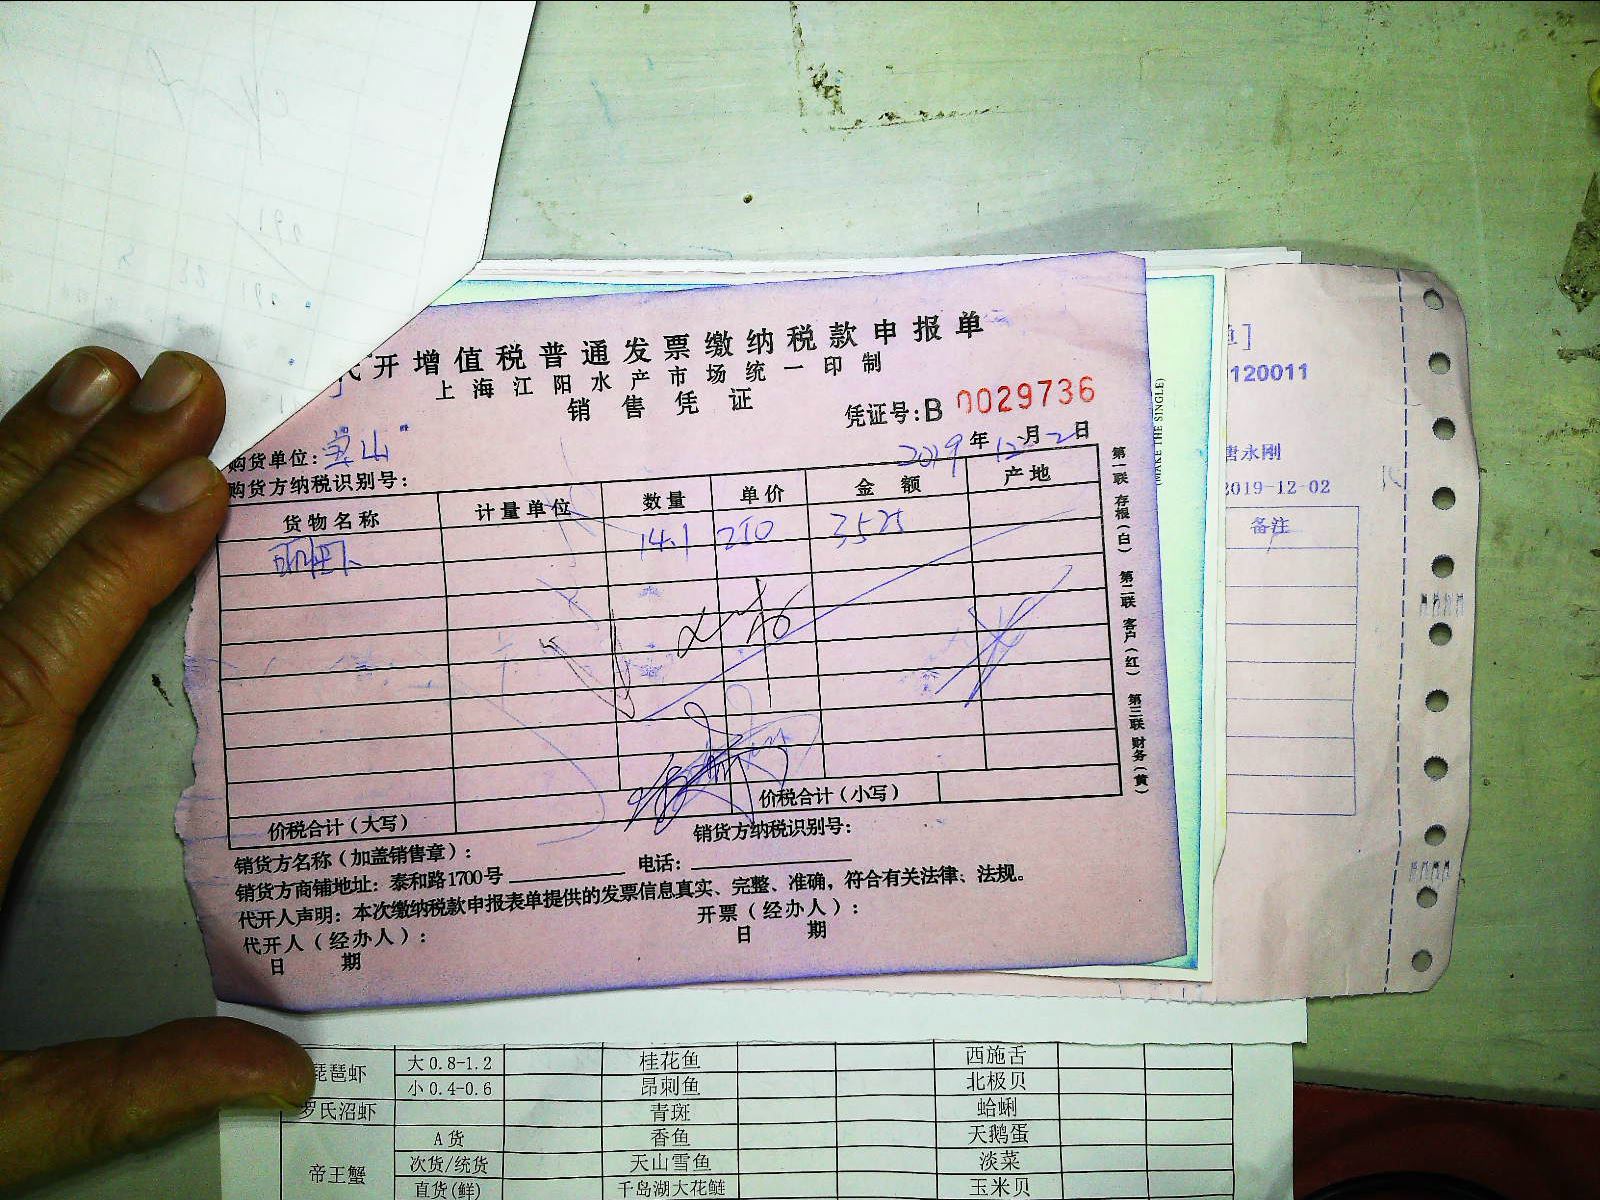 代开增值税普通发票缴纳税款申报单
上海江阳水产市场统一印制
销售凭证
凭证号:B 0029736
购货单位:宝山
2019年12月2日
购货方纳税识别号:
货物名称 计量单位 数量 单价 金额 产地
14.1 250 3525
价税合计(大写) 价税合计(小写)
销货方名称(加盖销售章): 销货方纳税识别号:
销货方商铺地址:泰和路1700号 电话:
代开人声明:本次缴纳税款申报表单提供的发票信息真实、完整、准确,符合有关法律、法规。
代开人(经办人): 开票(经办人):
日期 日期
第一联 存根(白) 第二联 客户(红) 第三联 财务(黄)
(MAKE THE SINGLE)
单]
120011
唐永刚
2019-12-02
备注
琵琶虾 大0.8-1.2 桂花鱼 西施舌
小0.4-0.6 昂刺鱼 北极贝
罗氏沼虾 青斑 蛤蜊
帝王蟹 A货 香鱼 天鹅蛋
次货/统货 天山雪鱼 淡菜
直货(鲜) 千岛湖大花鲢 玉米贝